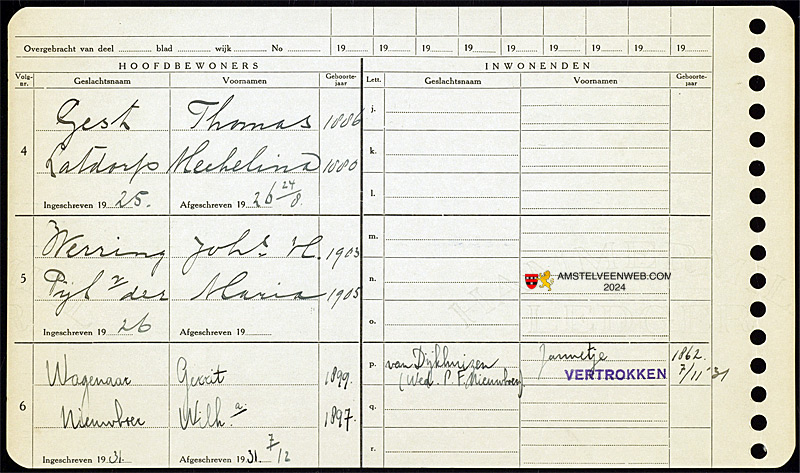 Overgebracht van deel ........ blad ........ wijk ........ No ........ 19 19 19 19 19 19 19 19 19
HOOFDBEWONERS INWONENDEN
Volg-nr. Geslachtsnaam Voornamen Geboorte-jaar Lett. Geslachtsnaam Voornamen Geboorte-jaar
4
Gest Thomas 1886 j.
Latdorp Mechelina 1880 k.
Ingeschreven 19 25. Afgeschreven 19 26 24/8 l.
5
Werring Joh.s H. 1903 m.
Pijl v der Maria 1905 n.
AMSTELVEENWEB.COM
2024
Ingeschreven 19 26 Afgeschreven 19 o.
6
Wagenaar Gerrit 1899. p. van Dijkhuizen Jannetje 1862.
(Wed. P. F. Nieuwboer) VERTROKKEN 7/11 '31
Nieuwboer Wilh.a 1897. q.
Ingeschreven 19 31. Afgeschreven 19 31. 7/12 r.